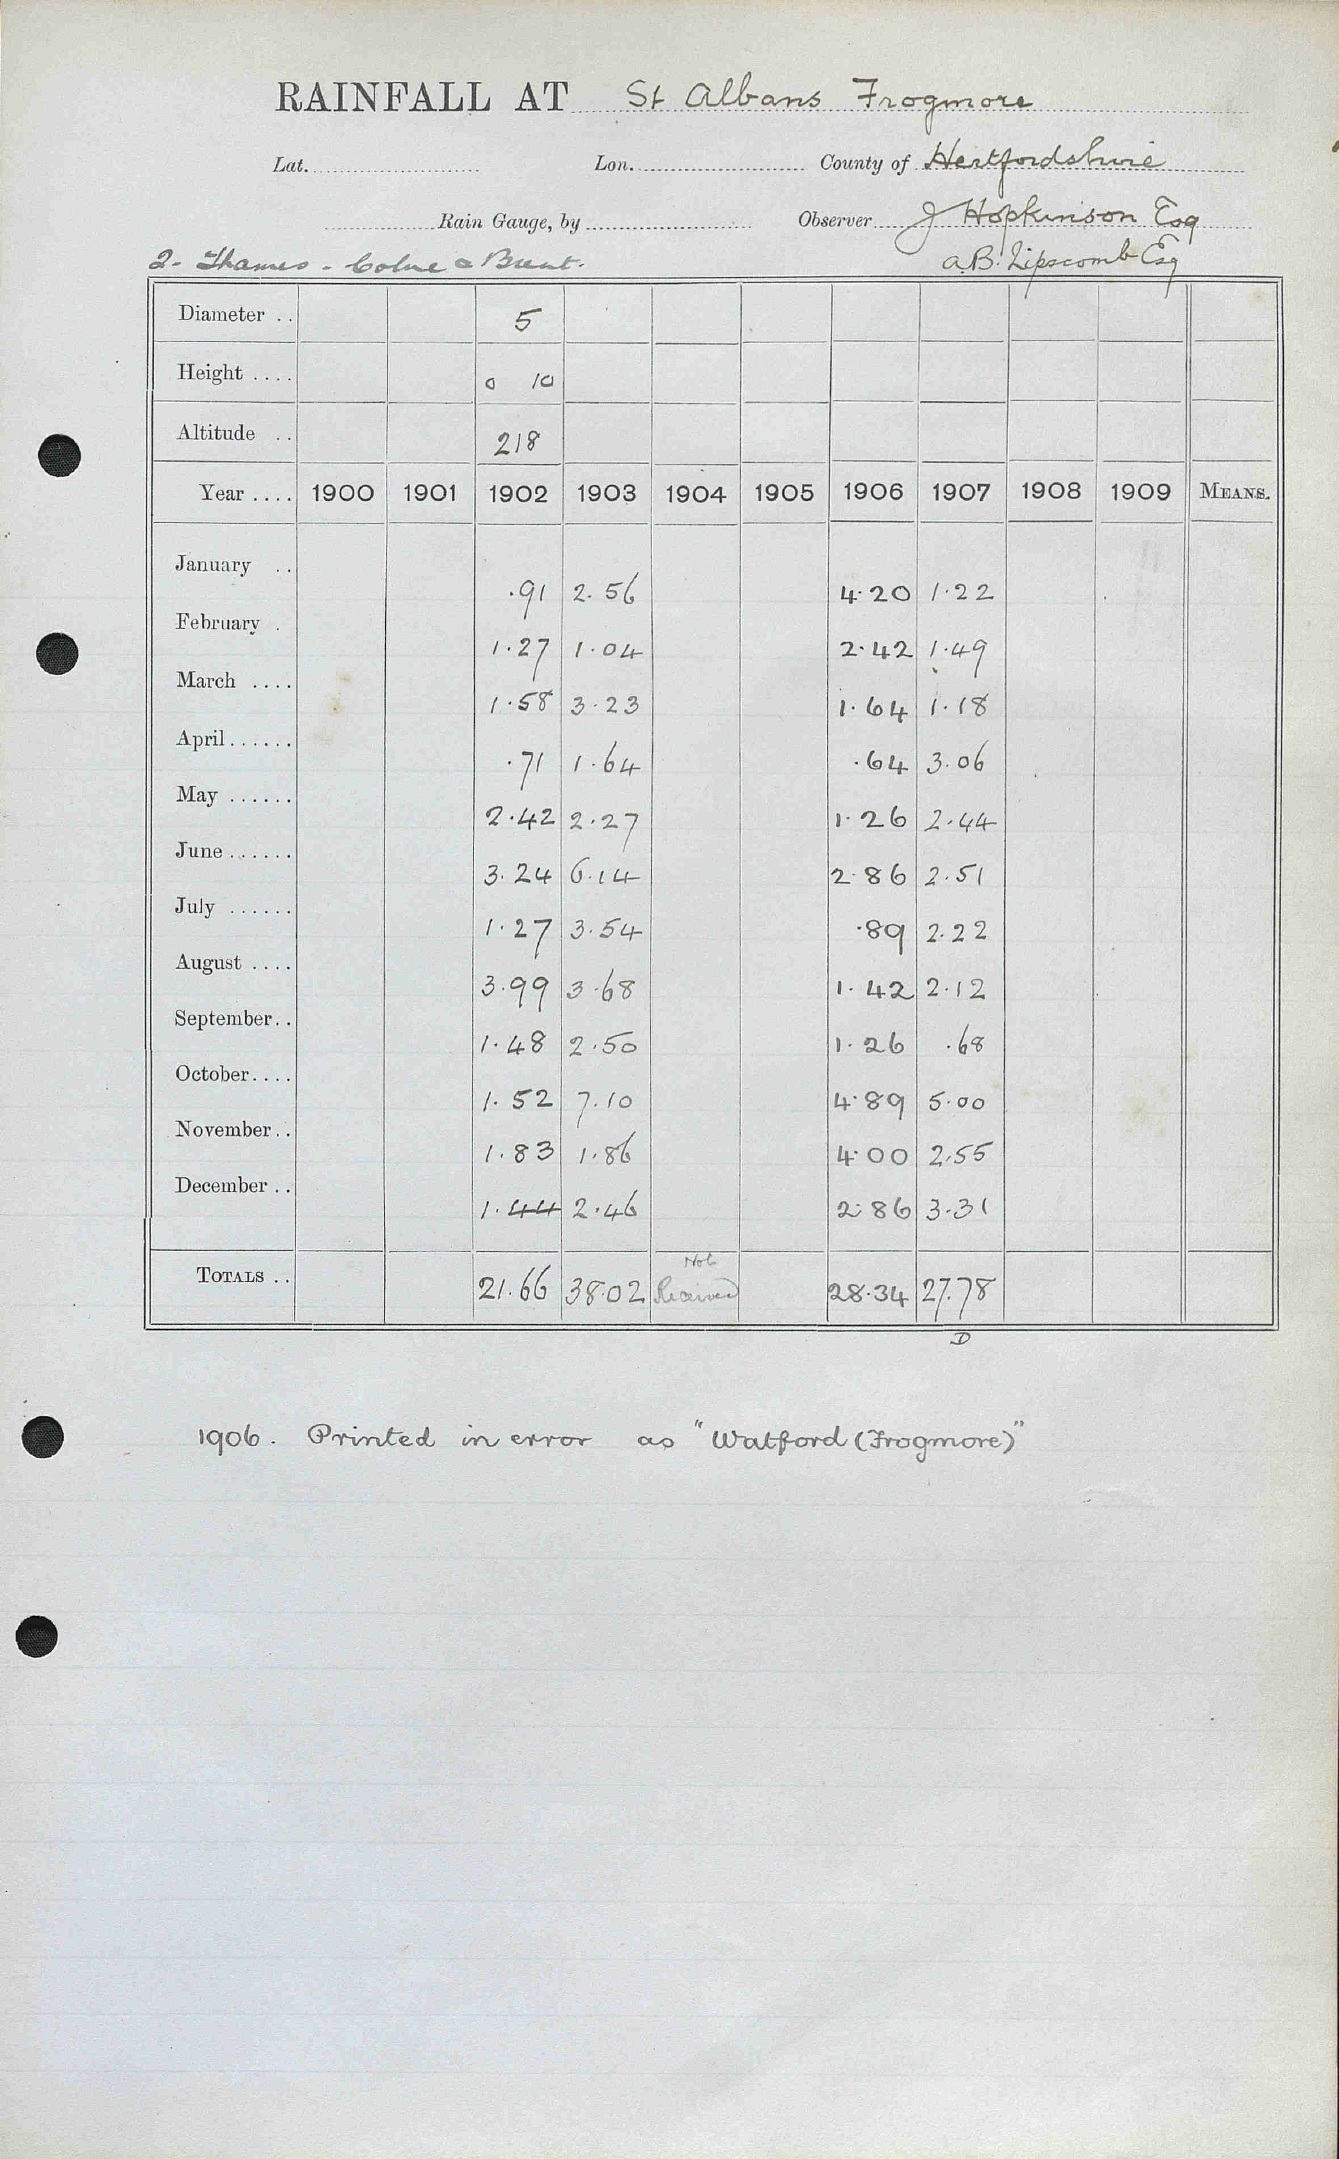 RAINFALL AT St Albans Frogmore
Lat. Lon. County of Hertfordshire
Rain Gauge, by Observer J Hopkinson Esq
2- Thames - Colne & Brent. A.B. Lipscomb Esq
Diameter .. 5
Height .... 0 10
Altitude .. 218
Year .... 1900 1901 1902 1903 1904 1905 1906 1907 1908 1909 MEANS.
January .. .91 2.56 4.20 1.22
February . 1.27 1.04 2.42 1.49
March .... 1.58 3.23 1.64 1.18
April...... .71 1.64 .64 3.06
May ...... 2.42 2.27 1.26 2.44
June...... 3.24 6.14 2.86 2.51
July ...... 1.27 3.54 .89 2.22
August .... 3.99 3.68 1.42 2.12
September.. 1.48 2.50 1.26 .68
October.... 1.52 7.10 4.89 5.00
November.. 1.83 1.86 4.00 2.55
December .. 1.44 2.46 2.86 3.31
TOTALS .. 21.66 38.02 Not Received 28.34 27.78
D
1906. Printed in error as "Watford (Frogmore)"